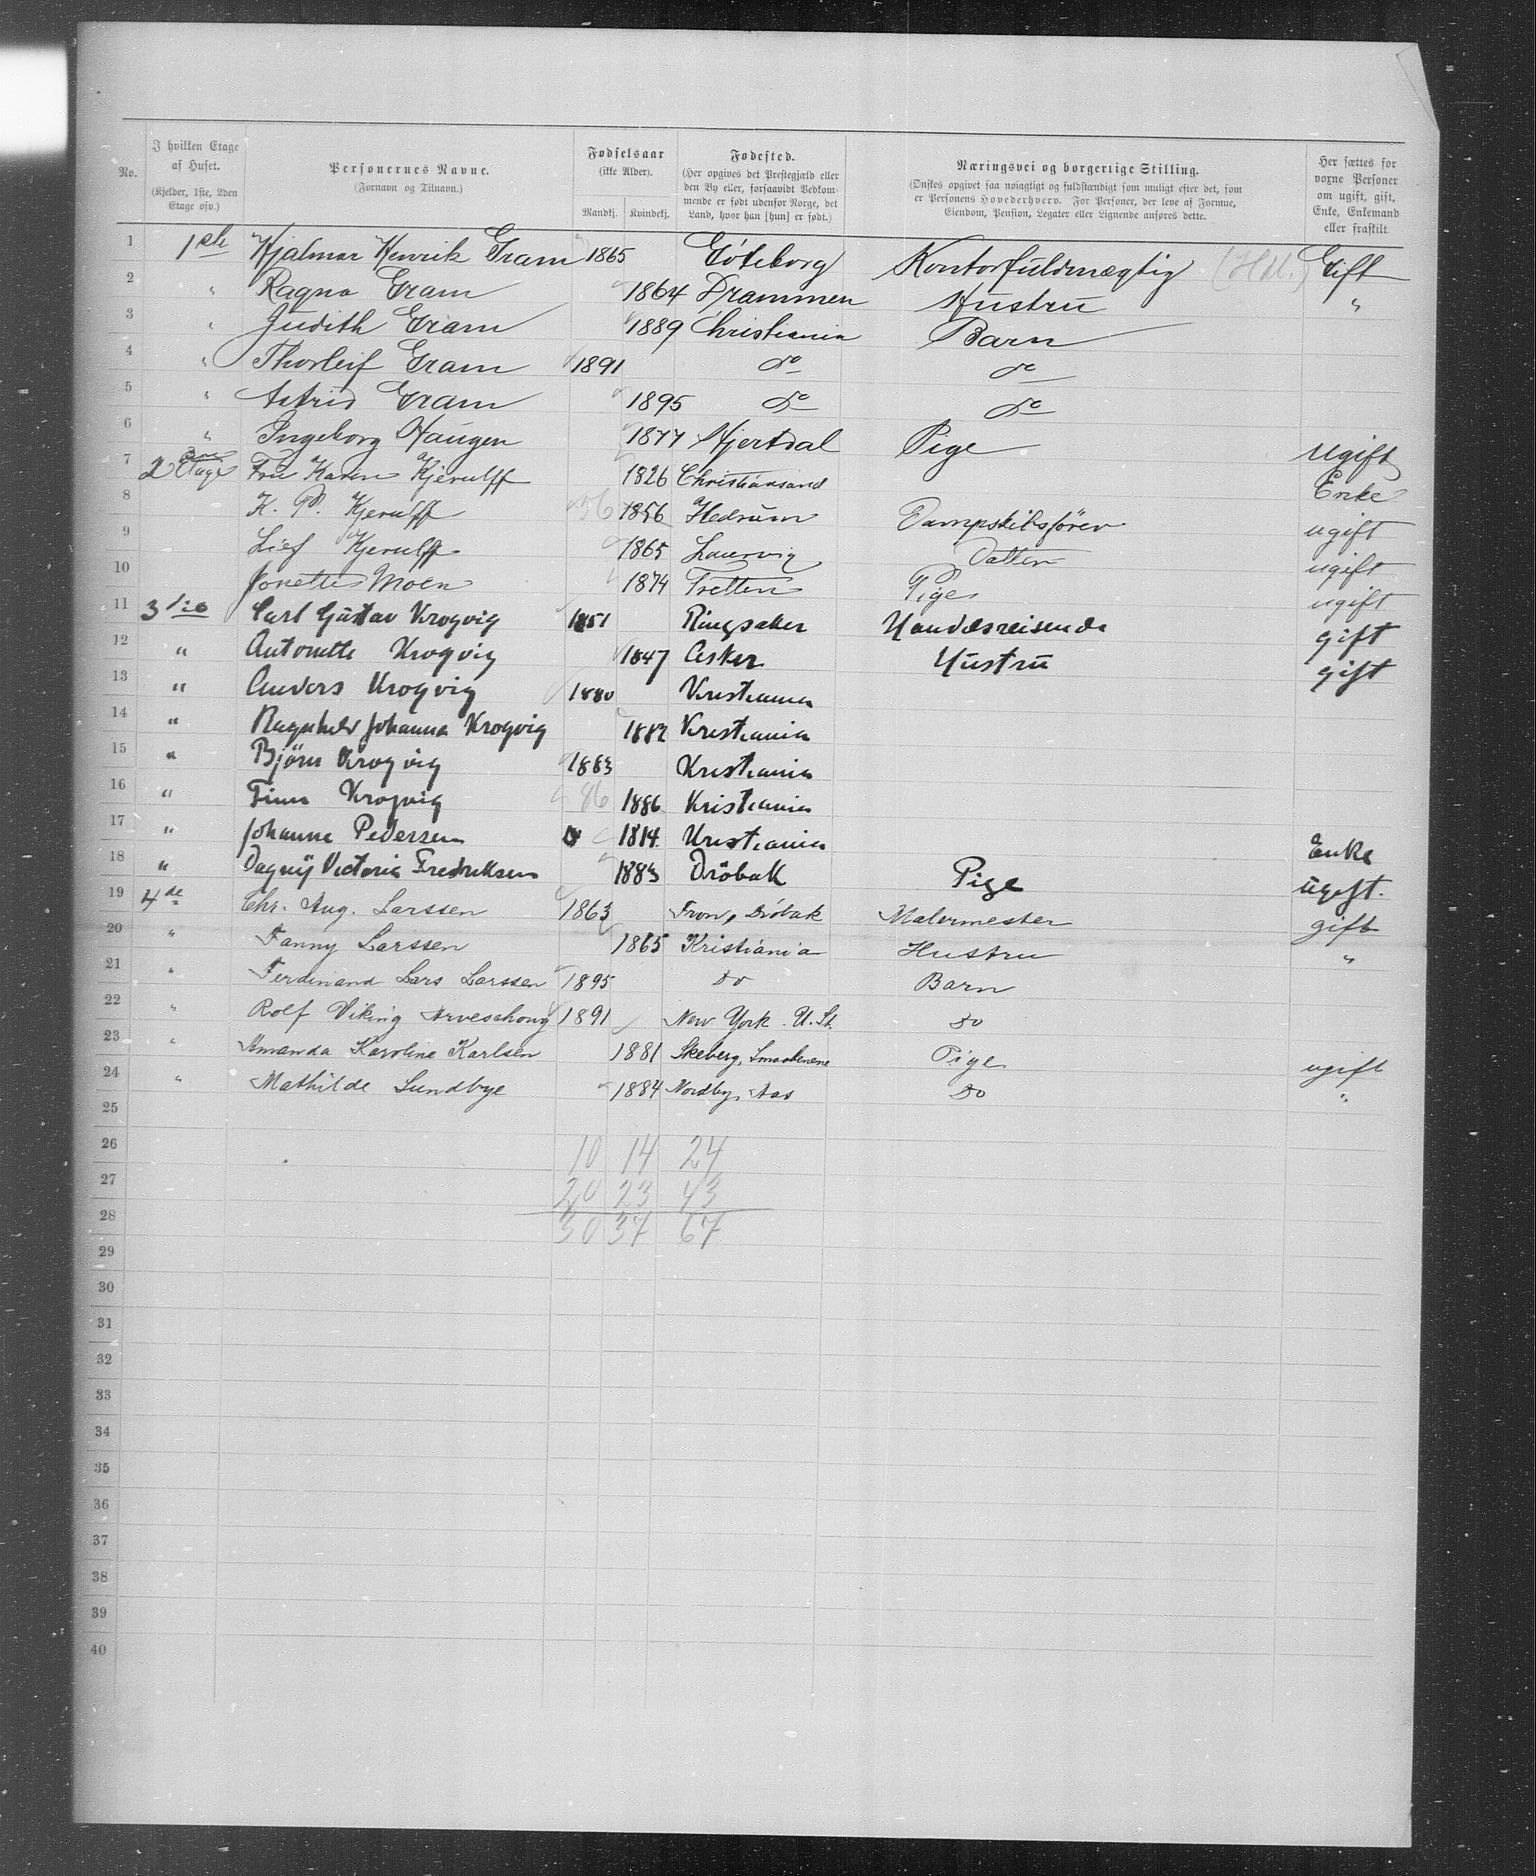 No.
I hvilken Etage af Huset.
(Kjelder, 1ste, 2den Etage osv.)
Personernes Navne.
(Fornavn og Tilnavn.)
Fødselsaar
(ikke Alder).
Mandkj. Kvindekj.
Fødested.
(Her opgives det Prestegjæld eller
den By eller, forsaavidt Vedkom-
mende er født udenfor Norge, det
Land, hvor han [hun] er født.)
Næringsvei og borgerlige Stilling.
(Ønskes opgivet saa nøiagtigt og fuldstændigt som muligt efter det, som
er Personens Hovederhverv. For Personer, der leve af Formue,
Eiendom, Pension, Legater eller Lignende anføres dette.
Her sættes for
voxne Personer
om ugift, gift,
Enke, Enkemand
eller fraskilt
1 1ste Hjalmar Henrik Gram 1865 Göteborg Kontorfuldmægtig (Hdl.) Gift
2 " Ragna Gram 1864 Drammen Hustru "
3 " Judith Gram 1889 Christiania Barn
4 " Thorleif Gram 1891 do do
5 " Astrid Gram 1895 do do
6 " Ingeborg Haugen 1877 Hjertdal Pige ugift
7 2den Etage Fru Karen Kjerulff 1826 Christiansand Enke
8 K. P. Kjerulff 56 1856 Hedrum Dampskibsfører ugift
9 Lief Kjerulff 1865 Laurvig Datter ugift
10 Jonette Moen 1874 Tretten Pige ugift
11 3die Carl Gustav Krogvig 1851 Ringsaker Handelsreisende gift
12 " Antonette Krogvig 1847 Asker Hustru gift
13 " Anders Krogvig 1880 Kristiania
14 " Ragnhild Johanna Krogvig 1882 Kristiania
15 " Bjørn Krogvig 1883 Kristiania
16 " Finn Krogvig 86 1886 Kristiania
17 " Johanne Pedersen 1814. Kristiania Enke
18 " Dagny Victoria Fredriksen 1883 Drøbak Pige ugift.
19 4de Chr. Aug. Larssen 1863 Fron, Drøbak Malermester gift
20 " Fanny Larssen 1865 Kristiania Hustru "
21 " Ferdinand Lars Larssen 1895 Do Barn
22 " Rolf Viking Arveschoug 1891 New York U. St. Do
23 " Amanda Karoline Karlsen 1881 Skeberg, Smaalenene Pige ugift
24 " Mathilde Lundbye 1884 Nordby, Aas Do "
25
26 10 14 24
27 20 23 43
28 30 37 67
29
30
31
32
33
34
35
36
37
38
39
40